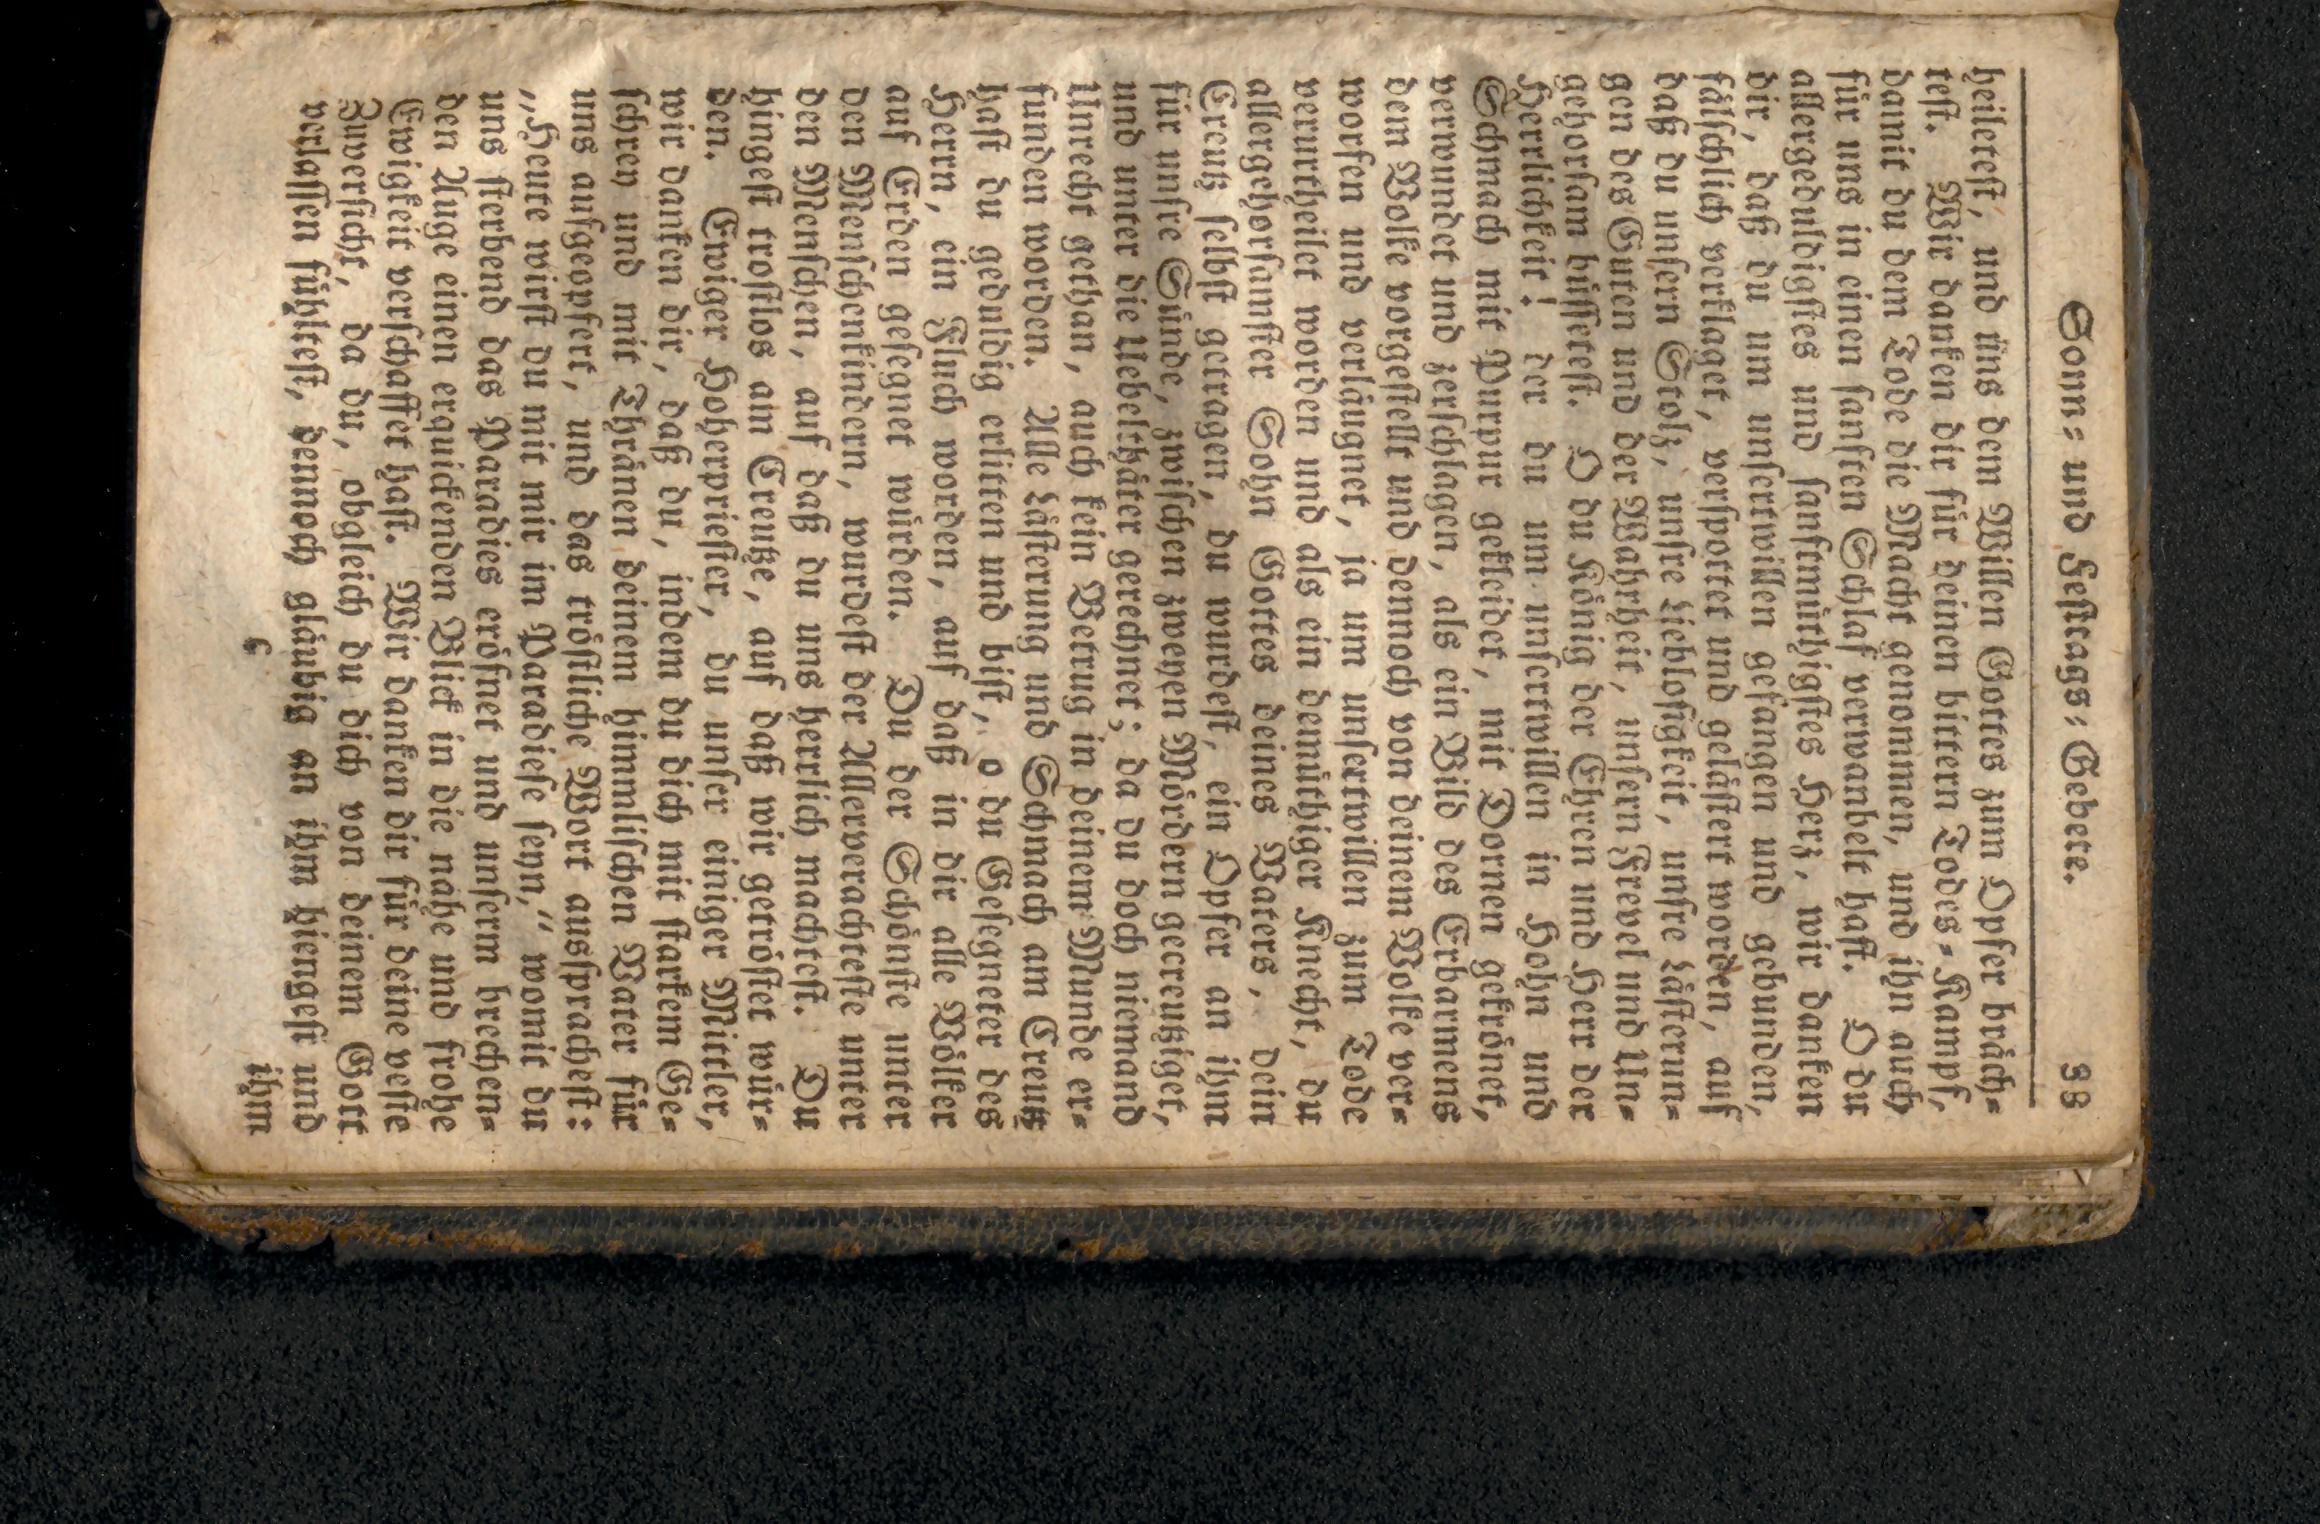 Sonn- und Festtags-Gebete. 33
heiletest, und uns dem Willen Gottes zum Opfer bräch-
test. Wir danken dir für deinen bittern Todes-Kampf,
damit du dem Tode die Macht genommen, und ihn auch
für uns in einen sanften Schlaf verwandelt hast. O du
allergeduldigstes und sanftmüthigstes Herz, wir danken
dir, daß du um unsertwillen gefangen und gebunden,
fälschlich verklaget, verspottet und gelästert worden, auf
daß du unsern Stolz, unsre Lieblosigkeit, unsre Lästerun-
gen des Guten und der Wahrheit, unsern Frevel und Un-
gehorsam büssetest. O du König der Ehren und Herr der
Herrlichkeit! der du um unsertwillen in Hohn und
Schmach mit Purpur gekleidet, mit Dornen gekrönet,
verwundet und zerschlagen, als ein Bild des Erbarmens
dem Volke vorgestellt und dennoch von deinem Volke ver-
worfen und verläugnet, ja um unsertwillen zum Tode
verurtheilet worden und als ein demüthiger Knecht, du
allergehorsamster Sohn Gottes deines Vaters, dein
Creutz selbst getragen, du wurdest, ein Opfer an ihm
für unsre Sünde, zwischen zweyen Mördern gecreutziget,
und unter die Uebelthäter gerechnet; da du doch niemand
Unrecht gethan, auch kein Betrug in deinem Munde er-
funden worden. Alle Lästerung und Schmach am Creutz
hast du geduldig erlitten und bist, o du Gesegneter des
Herrn, ein Fluch worden, auf daß in dir alle Völker
auf Erden gesegnet würden. Du der Schönste unter
den Menschenkindern, wurdest der Allerverachteste unter
den Menschen, auf daß du uns herrlich machtest. Du
hingest trostlos am Creutze, auf daß wir getröstet wür-
den. Ewiger Hoherpriester, du unser einiger Mittler,
wir danken dir, daß du, indem du dich mit starkem Ge-
schrey und mit Thränen deinem himmlischen Vater für
uns aufgeopfert, und das tröstliche Wort aussprachest:
„Heute wirst du mit mir im Paradiese seyn,“ womit du
uns sterbend das Paradies eröfnet und unserm brechen-
den Auge einen erquickenden Blick in die nahe und frohe
Ewigkeit verschaffet hast. Wir danken dir für deine veste
Zuversicht, da du, obgleich du dich von deinem Gott
verlassen fühltest, dennoch gläubig an ihm hiengest und
c ihm